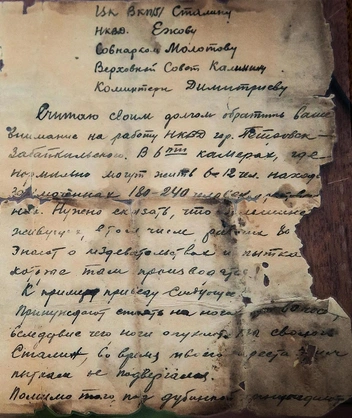 ЦК ВКП/б/ Сталину
НКВД. Ежову
Совнарком Молотову
Верховный Совет Калинину
Коминтерн Димитриеву
Считаю своим долгом обратить ваше
внимание на работу НКВД гор. Петровск-
Забайкальского. В 6ти камерах, где
нормально могут жить 6-12 чл. находя
заключенных 180-240 человек,
ных. Нужно сказать, что
живущие, в том числе
знают о издевательствах и пытках
которые там производятся.
К примеру приведу следующее
Принуждают стоять на носках
вследствие чего ноги
Сталин, во время твоего ареста
пыткам не подвергался
Помимо того под дубинкой